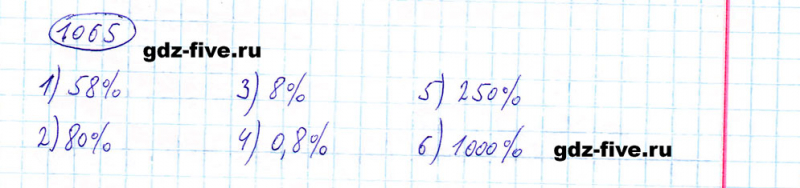 1065
gdz-five.ru
1) 58% 3) 8% 5) 250%
2) 80% 4) 0,8% 6) 1000%
gdz-five.ru